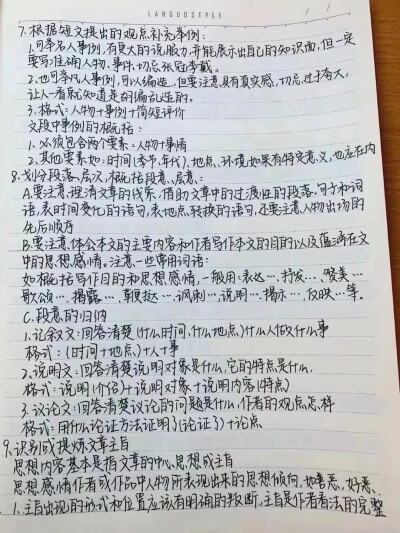 LANGUOSTYLE
7.根据短文提出的观点补充举例:
1.可举名人事例,有更大的说服力,并能展示出自己的知识面,但一定
要写准确人物、事件,切忌张冠李戴。
2.也可举凡人事例,可以编造,但要注意具有真实感,切忌过于夸大,
让人一看就知道是胡编乱造的。
3.格式:人物+事例+简短评价
文段中事例的概括:
1.必须包含两个要素:人物+事情
2.其他要素如:时间(季节,年代)、地点、环境如果有特定意义,也应在内
8.划分段落、层次,概括段意、层意:
A.要注意理清文章的线索,借助文章中的过渡性的段落、句子和词
语,表时间变化的语句,表地点转换的语句,还要注意人物出场的
先后顺序
B.要注意体会本文的主要内容和作者写作本文的目的以及蕴涵在文
中的思想感情。注意一些常用词语:
如概括写作目的和思想感情,一般用:表达…,抒发…,赞美…
歌颂…,揭露…,鞭挞…讽刺…,说明…,揭示…,反映…等。
C.段意的归纳
1.记叙文:回答清楚(什么时间、什么地点)什么人做什么事
格式:(时间+地点)+人+事
2.说明文:回答清楚说明对象是什么,它的特点是什么.
格式:说明(介绍)+说明对象+说明内容(特点)
3.议论文:回答清楚议论的问题是什么,作者的观点怎样
格式:用什么论证方法证明了(论证了)+论点
9.识别或提炼文章主旨
思想内容基本是指文章的中心思想或主旨
思想感情作者或作品中人物所表现出来的思想倾向,如善恶、好恶、
1.主旨出现的形式和位置应该有明确的判断,主旨是作者看法的完整